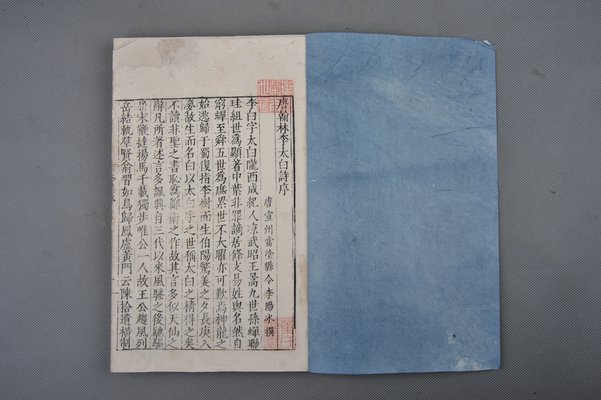 唐翰林李太白詩序
唐宣州當塗縣令李陽冰撰
李白字太白隴西成紀人凉武昭王暠九世孫蟬聯
珪組世爲顯著中葉非罪謫居條支易姓與名然自
窮蟬至舜五世爲庶累世不大曜亦可歎焉神龍之
始逃歸于蜀復指李樹而生伯陽驚姜之夕長庚入
夢故生而名白以太白字之世稱太白之精得之矣
不讀非聖之書恥爲鄭衛之作故其言多似天仙之
辭凡所著述言多諷興自三代以來風騷之後馳驅
屈宋鞭撻揚馬千載獨步唯公一人故王公趨風列
岳結軌羣賢翕習如鳥歸鳳盧黃門云陳拾遺橫制